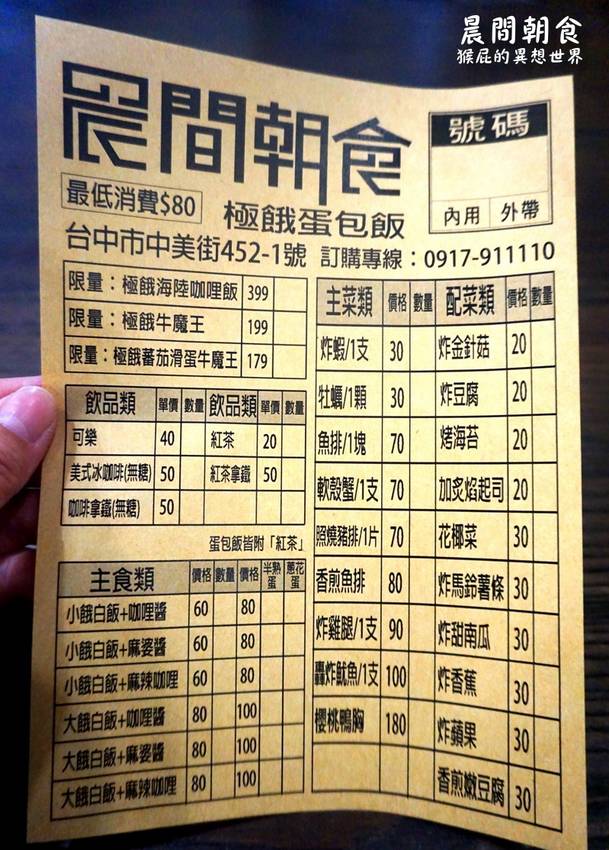 晨間朝食
猴屁的異想世界
晨間朝食
號碼
內用 外帶
最低消費$80
極餓蛋包飯
台中市中美街452-1號 訂購專線：0917-911110
限量：極餓海陸咖哩飯 399
限量：極餓牛魔王 199
限量：極餓蕃茄滑蛋牛魔王 179
飲品類 單價 數量 飲品類 單價 數量
可樂 40 紅茶 20
美式冰咖啡(無糖) 50 紅茶拿鐵 50
咖啡拿鐵(無糖) 50
蛋包飯皆附「紅茶」
主食類 價格 數量 價格 半熟蛋 蔥花蛋
小餓白飯+咖哩醬 60 80
小餓白飯+麻婆醬 60 80
小餓白飯+麻辣咖哩 60 80
大餓白飯+咖哩醬 80 100
大餓白飯+麻婆醬 80 100
大餓白飯+麻辣咖哩 80 100
主菜類 價格 數量 配菜類 價格 數量
炸蝦/1支 30 炸金針菇 20
牡蠣/1顆 30 炸豆腐 20
魚排/1塊 70 烤海苔 20
軟殼蟹/1支 70 加炙焰起司 20
照燒豬排/1片 70 花椰菜 30
香煎魚排 80 炸馬鈴薯條 30
炸雞腿/1支 90 炸甜南瓜 30
轟炸魷魚/1支 100 炸香蕉 30
櫻桃鴨胸 180 炸蘋果 30
香煎嫩豆腐 30